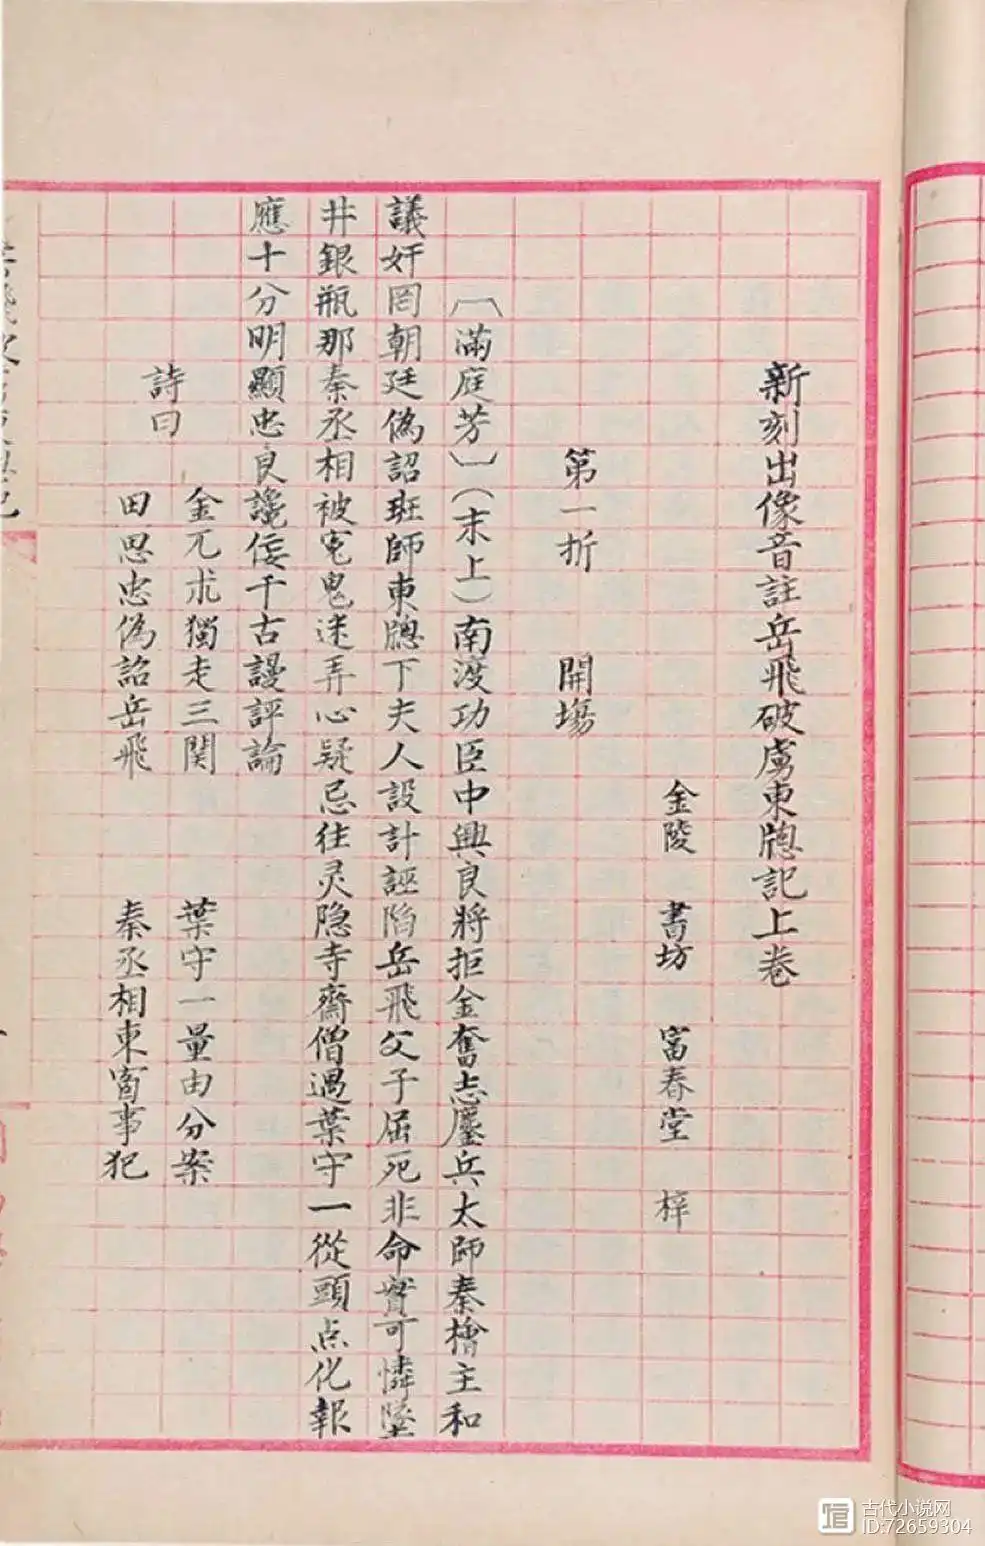 新刻出像音註岳飛破虜東牕記上卷
金陵 書坊 富春堂 梓
第一折 開場
〔滿庭芳〕（末上）南渡功臣中興良將拒金奮志鏖兵太師秦檜主和
議奸罔朝廷偽詔班師東牕下夫人設計誣陷岳飛父子屈死非命實可憐墜
井銀瓶那秦丞相被冤鬼迷弄心疑忌往灵隐寺齋僧遇葉守一從頭点化報
應十分明顯忠良讒佞千古謾評論
詩曰
金兀朮獨走三関 葉守一量由分案
田思忠偽詔岳飛 秦丞相東窗事犯
古代小说网
ID:72659304